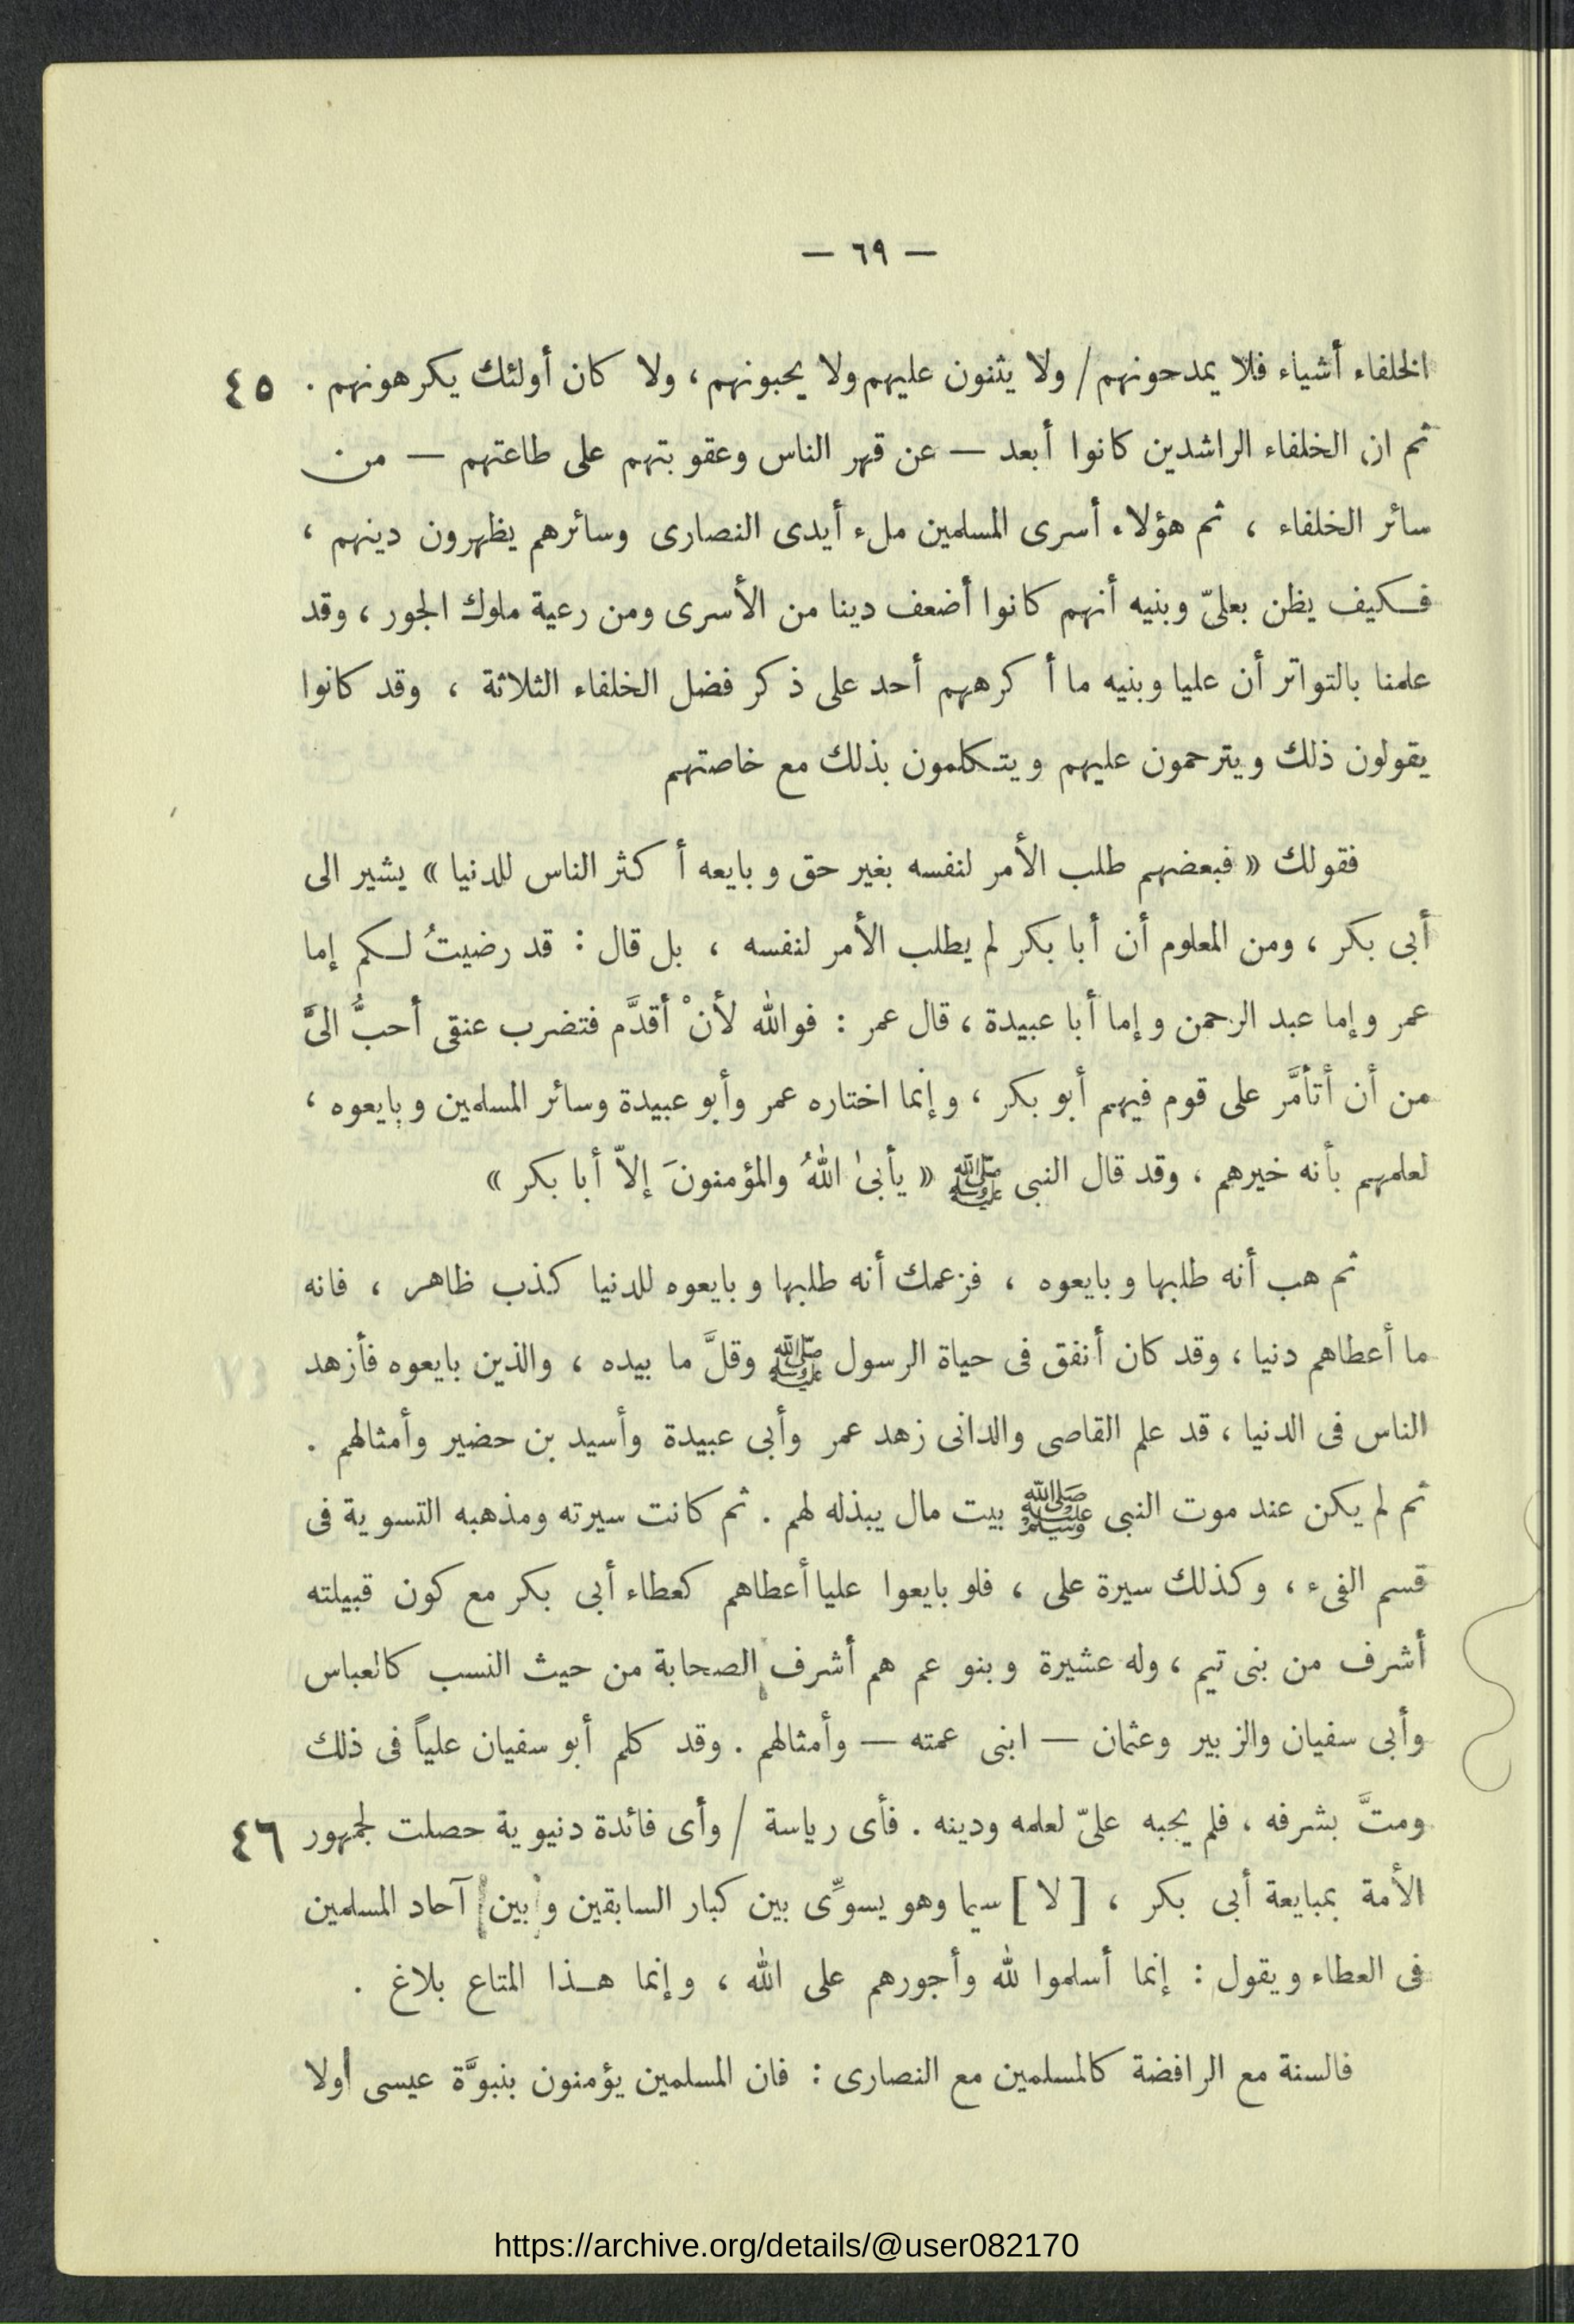 — ٦٩ —
الخلفاء أشياء فلا يمدحونهم / ولا يثنون عليهم ولا يحبونهم ، ولا كان أولئك يكرهونهم . ٤٥
ثم ان الخلفاء الراشدين كانوا أبعد — عن قهر الناس وعقوبتهم على طاعتهم — من
سائر الخلفاء ، ثم هؤلاء أسرى المسلمين ملء أيدى النصارى وسائرهم يظهرون دينهم ،
فكيف يظن بعلىّ وبنيه أنهم كانوا أضعف دينا من الأسرى ومن رعية ملوك الجور ، وقد
علمنا بالتواتر أن عليا وبنيه ما أكرههم أحد على ذكر فضل الخلفاء الثلاثة ، وقد كانوا
يقولون ذلك ويترحمون عليهم ويتكلمون بذلك مع خاصتهم
فقولك « فبعضهم طلب الأمر لنفسه بغير حق وبايعه أكثر الناس للدنيا » يشير الى
أبى بكر ، ومن المعلوم أن أبا بكر لم يطلب الأمر لنفسه ، بل قال : قد رضيتُ لكم إما
عمر وإما عبد الرحمن وإما أبا عبيدة ، قال عمر : فوالله لأنْ أقدَّم فتضرب عنقى أحبُّ الىَّ
من أن أتأمَّر على قوم فيهم أبو بكر ، وإنما اختاره عمر وأبو عبيدة وسائر المسلمين وبايعوه ،
لعلمهم بأنه خيرهم ، وقد قال النبى ﷺ « يأبىٰ اللهُ والمؤمنونَ إلاّ أبا بكر »
ثم هب أنه طلبها وبايعوه ، فزعمك أنه طلبها وبايعوه للدنيا كذب ظاهر ، فانه
ما أعطاهم دنيا ، وقد كان أنفق فى حياة الرسول ﷺ وقلَّ ما بيده ، والذين بايعوه فأزهد
الناس فى الدنيا ، قد علم القاصى والدانى زهد عمر وأبى عبيدة وأسيد بن حضير وأمثالهم .
ثم لم يكن عند موت النبى ﷺ بيت مال يبذله لهم . ثم كانت سيرته ومذهبه التسوية فى
قسم الفىء ، وكذلك سيرة على ، فلو بايعوا عليا أعطاهم كعطاء أبى بكر مع كون قبيلته
أشرف من بنى تيم ، وله عشيرة وبنو عم هم أشرف الصحابة من حيث النسب كالعباس
وأبى سفيان والزبير وعثمان — ابنى عمته — وأمثالهم . وقد كلم أبو سفيان علياً فى ذلك
ومتَّ بشرفه ، فلم يجبه علىّ لعلمه ودينه . فأى رياسة / وأى فائدة دنيوية حصلت لجمهور ٤٦
الأمة بمبايعة أبى بكر ، [ لا ] سيما وهو يسوِّى بين كبار السابقين وبين آحاد المسلمين
فى العطاء ويقول : إنما أسلموا لله وأجورهم على الله ، وإنما هذا المتاع بلاغ .
فالسنة مع الرافضة كالمسلمين مع النصارى : فان المسلمين يؤمنون بنبوَّة عيسى ولا
https://archive.org/details/@user082170